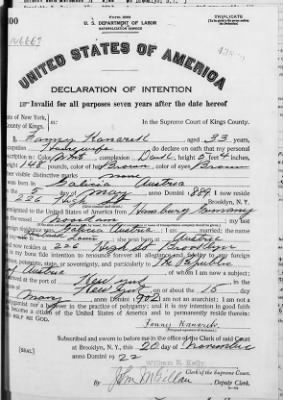 Form 2202
U. S. DEPARTMENT OF LABOR
NATURALIZATION SERVICE
TRIPLICATE
UNITED STATES OF AMERICA
DECLARATION OF INTENTION
Invalid for all purposes seven years after the date hereof
State of New York,
County of Kings.
In the Supreme Court of Kings County.
I, Fanny, aged 33 years,
occupation Housewife, do declare on oath that my personal
description is: Color White, complexion Dark, height 5 feet inches,
weight 148 pounds, color of hair Brown, color of eyes Brown
other visible distinctive marks none
was born in Galicia Austria
on the 5 day of May, anno Domini 1889; I now reside
at 226 High St, Brooklyn, N.Y.
I emigrated to the United States of America from Hamburg Germany
on the vessel; my last
foreign residence was Galicia Austria; I am married; the name
Louis; was born at Austria
and now resides at 226 High St Brooklyn
It is my bona fide intention to renounce forever all allegiance and fidelity to any foreign
prince, potentate, state, or sovereignty, and particularly to The Republic
of Austria, of whom I am now a subject;
I arrived at the port of New York
on or about the 15 day
of May, anno Domini 1902; I am not an anarchist; I am not a
polygamist nor a believer in the practice of polygamy; and it is my intention in good faith
to become a citizen of the United States of America and to permanently reside therein:
SO HELP ME GOD.
Subscribed and sworn to before me in the office of the Clerk of said Court
at Brooklyn, N. Y., this 20 day of November
anno Domini 1922
[SEAL]
William E. Kelly
Clerk of the Supreme Court.
By, Deputy Clerk.